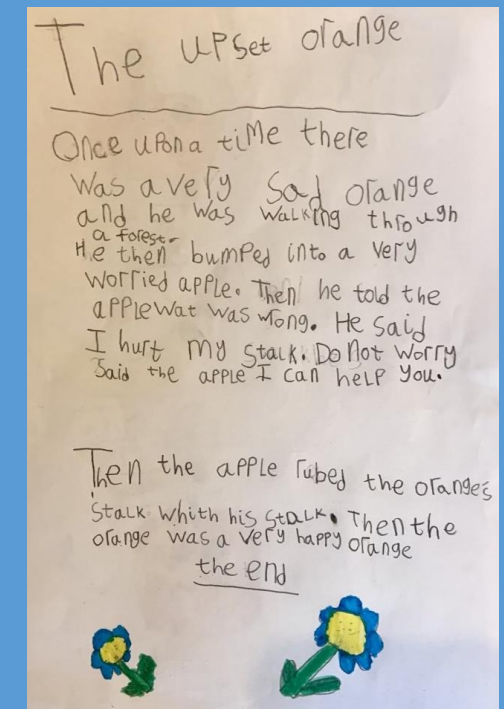 The upset orange
Once upon a time there
was a very sad orange
and he was walking through
a forest.
He then bumped into a very
worried apple. Then he told the
apple wat was wrong. He said
I hurt my stalk. Do not worry
said the apple I can help you.
Then the apple rubed the oranges
stalk whith his stalk. Then the
orange was a very happy orange
the end